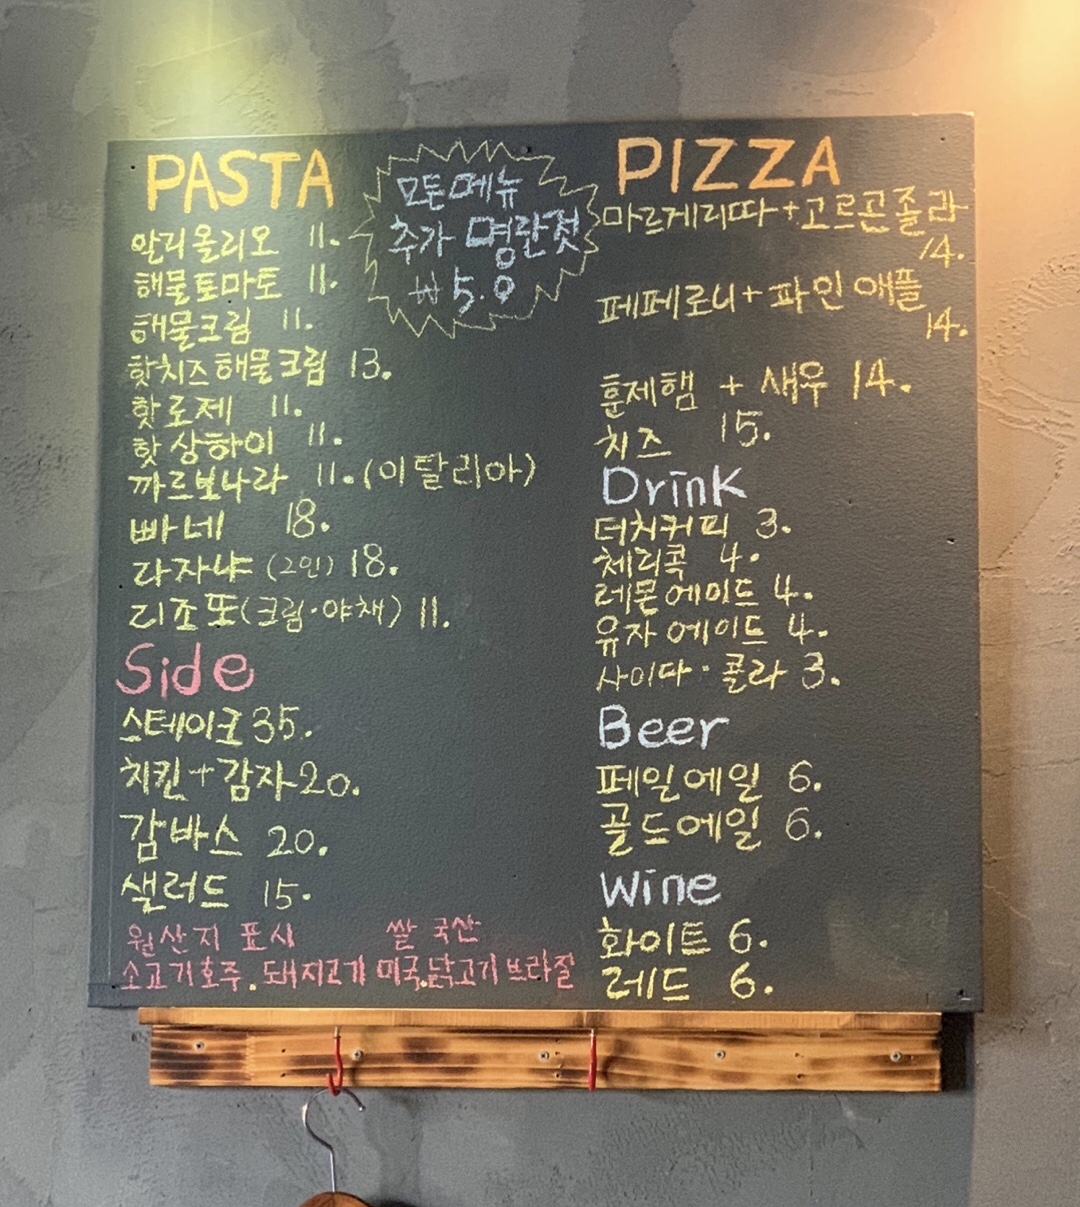 PASTA
알리올리오 11.
해물토마토 11.
해물크림 11.
핫치즈해물크림 13.
핫로제 11.
핫상하이 11.
까르보나라 11.(이탈리아)
빠네 18.
라자냐 (2인) 18.
리조또(크림·야채) 11.
모든메뉴
추가 명란젓
₩5.0
Side
스테이크 35.
치킨+감자 20.
감바스 20.
샐러드 15.
원산지 표시 쌀 국산
소고기호주. 돼지고기 미국.닭고기 브라질
PIZZA
마르게리따+고르곤졸라
14.
페페로니+파인애플
14.
훈제햄 + 새우 14.
치즈 15.
Drink
더치커피 3.
체리콕 4.
레몬에이드 4.
유자에이드 4.
사이다·콜라 3.
Beer
페일에일 6.
골드에일 6.
Wine
화이트 6.
레드 6.